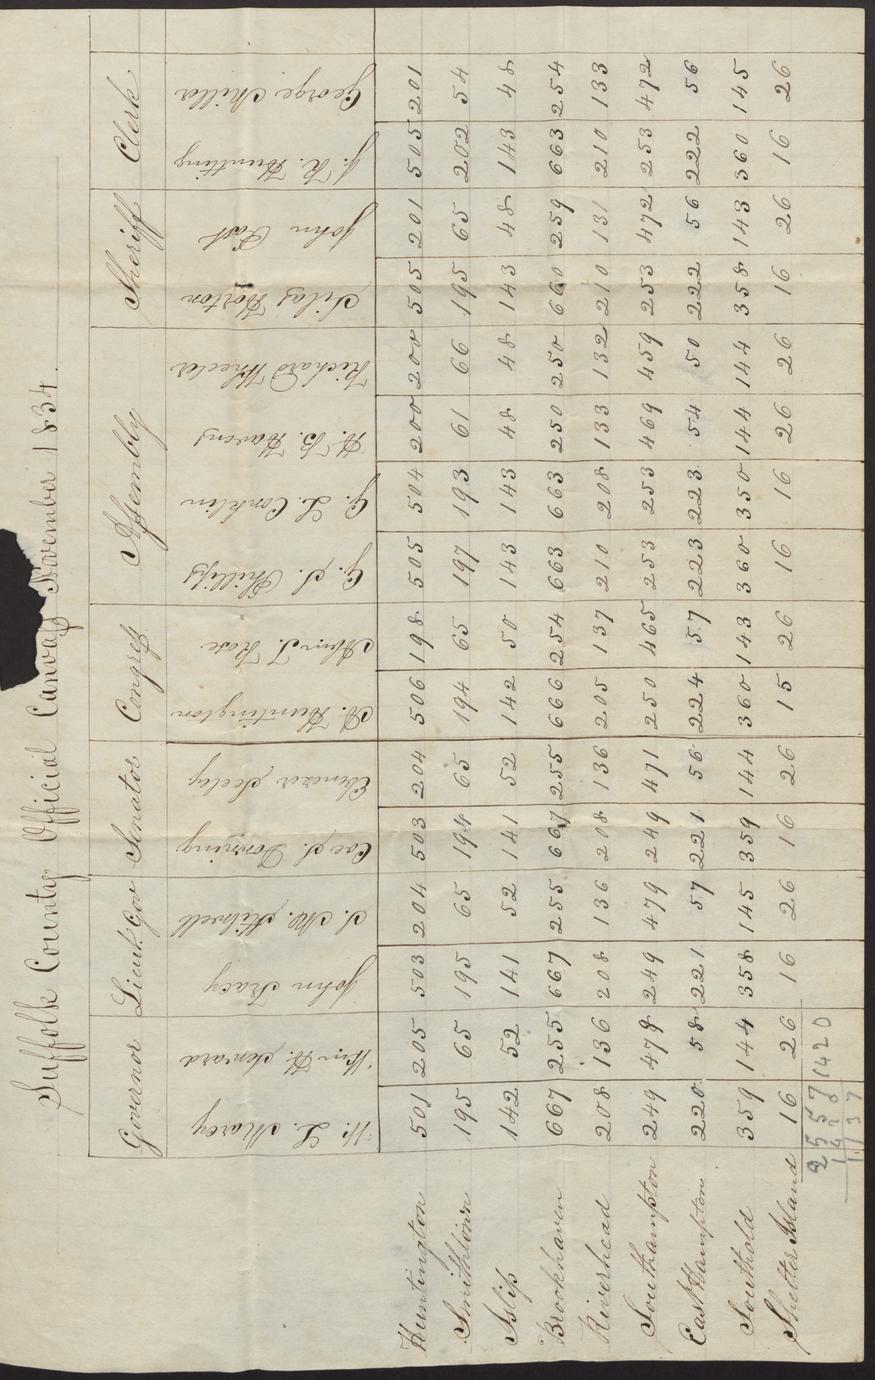 Suffolk County Official Canvass November 1834.
Governor Lieut. Gov Senator Congress Assembly Sheriff Clerk
W. L. Marcy Wm H. Seward John Tracy S. M. Stilwell Coe S. Downing Ebenezer Seeley A. Huntington Abm T. Rose G. S. Phillips G. L. Conklin H. B. Havens Richard Wheeler Silas Horton John J. R. Huntting George Miller
Huntington 501 205 503 204 503 204 506 198 505 504 200 200 505 201 505 201
Smithtown 195 65 195 65 194 65 194 65 197 193 61 66 195 65 202 54
Islip 142 52 141 52 141 52 142 50 143 143 48 48 143 48 143 48
Brookhaven 667 255 667 255 667 255 666 254 663 663 250 250 660 259 663 254
Riverhead 208 136 208 136 208 136 205 137 210 208 133 132 210 131 210 133
Southampton 249 479 249 479 249 471 250 465 253 253 469 459 253 472 253 472
East Hampton 220 58 221 57 221 56 224 57 223 223 54 50 222 56 222 56
Southold 359 144 358 145 359 144 360 143 360 350 144 144 358 143 360 145
Shelter Island 16 26 16 26 16 26 15 26 16 16 26 26 16 26 16 26
2557 1420
1137